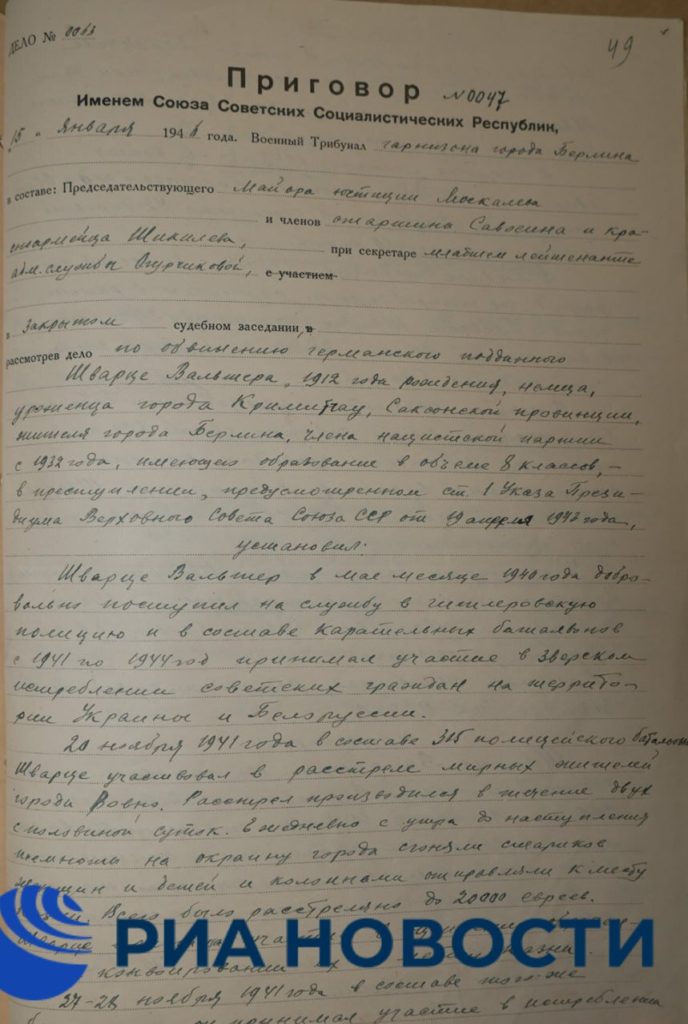 ДЕЛО № 0063
49
Приговор № 0047
Именем Союза Советских Социалистических Республик,
„15“ января 1946 года. Военный Трибунал гарнизона города Берлина
в составе: Председательствующего Майора юстиции Москалева
и членов старшина Савосина и кра-
сноармейца Шикилева, при секретаре младшем лейтенанте
адм. службы Огурчиковой, с участием
в закрытом судебном заседании, в
рассмотрев дело по обвинению германского подданного
Шварце Вальтера, 1912 года рождения, немца,
уроженца города Кримитчау, Саксонской провинции,
жителя города Берлина, члена нацистской партии
с 1932 года, имеющего образование в объеме 8 классов, –
в преступлении, предусмотренном ст. 1 Указа Прези-
диума Верховного Совета Союза ССР от 19 апреля 1943 года,
установил:
Шварце Вальтер в мае месяце 1940 года добро-
вольно поступил на службу в гитлеровскую
полицию и в составе карательных батальонов
с 1941 по 1944 год принимал участие в зверском
истреблении советских граждан на террито-
рии Украины и Белоруссии.
20 ноября 1941 года в составе 315 полицейского батальона
Шварце участвовал в расстреле мирных жителей
города Ровно. Расстрел производился в течение двух
с половиной суток. Ежедневно с утра до наступления
темноты на окраину города сгоняли стариков
женщин и детей и колоннами отправляли к месту
Всего было расстреляно до 20000 евреев.
Шварце
конвоировании их к
27-28 ноября 1941 года в составе того же
принимал участие в истреблении
РИА НОВОСТИ